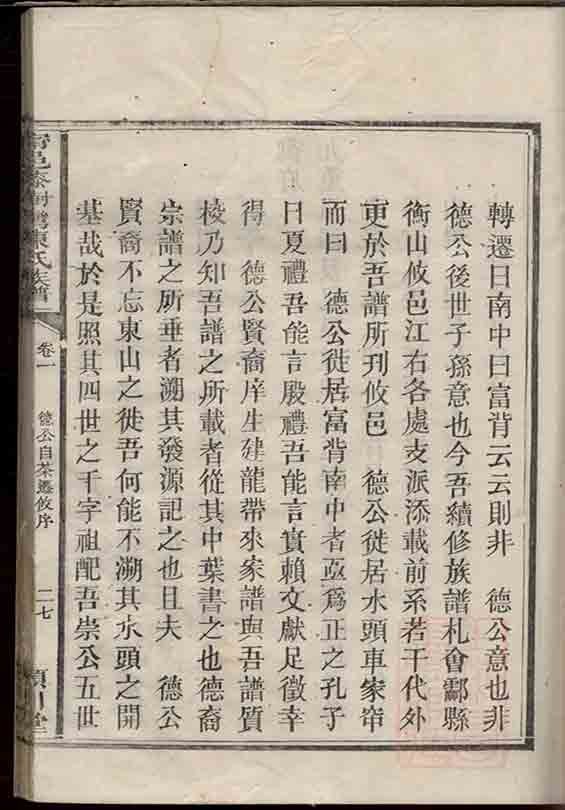 轉遷曰南中曰富背云云則非　德公意也非
德公後世子孫意也今吾續修族譜札會酃縣
衡山攸邑江右各處支派添載前系若干代外
更於吾譜所刊攸邑　德公徙居水頭車家帘
而曰　德公徙居富背南中者亟爲正之孔子
曰夏禮吾能言殷禮吾能言實賴文獻足徵幸
得　德公賢裔庠生建龍帶來家譜與吾譜質
棱乃知吾譜之所載者從其中葉書之也德裔
宗譜之所垂者溯其發源記之也且夫　德公
賢裔不忘東山之徙吾何能不溯其水頭之開
基哉於是照其四世之千字祖配吾崇公五世
陳氏族譜
卷一
德公自茶遷攸序
二七
潁川堂